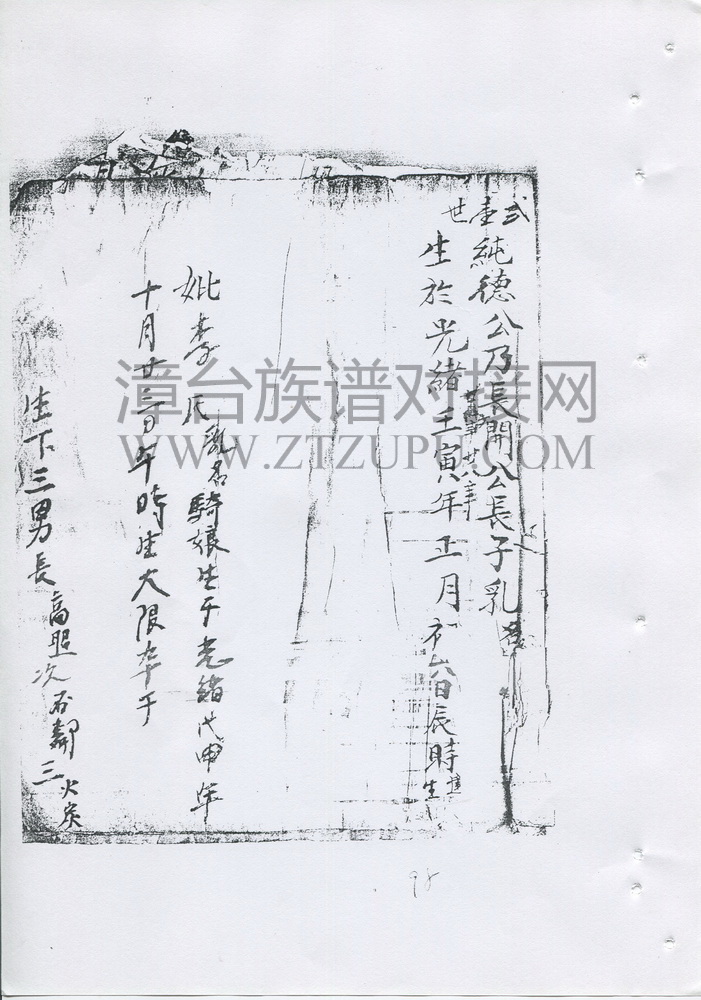 弍壹世
純德公乃長開公長子乳名
生於光緒壬寅年正月初六日辰時建生
廿八年
妣李氏乳名騎娘生于光緒戊申年
十月廿三日午時生大限卒于
生下三男長高照次不鄰三火炭
漳台族谱对接网
WWW.ZTZUPU.COM
98